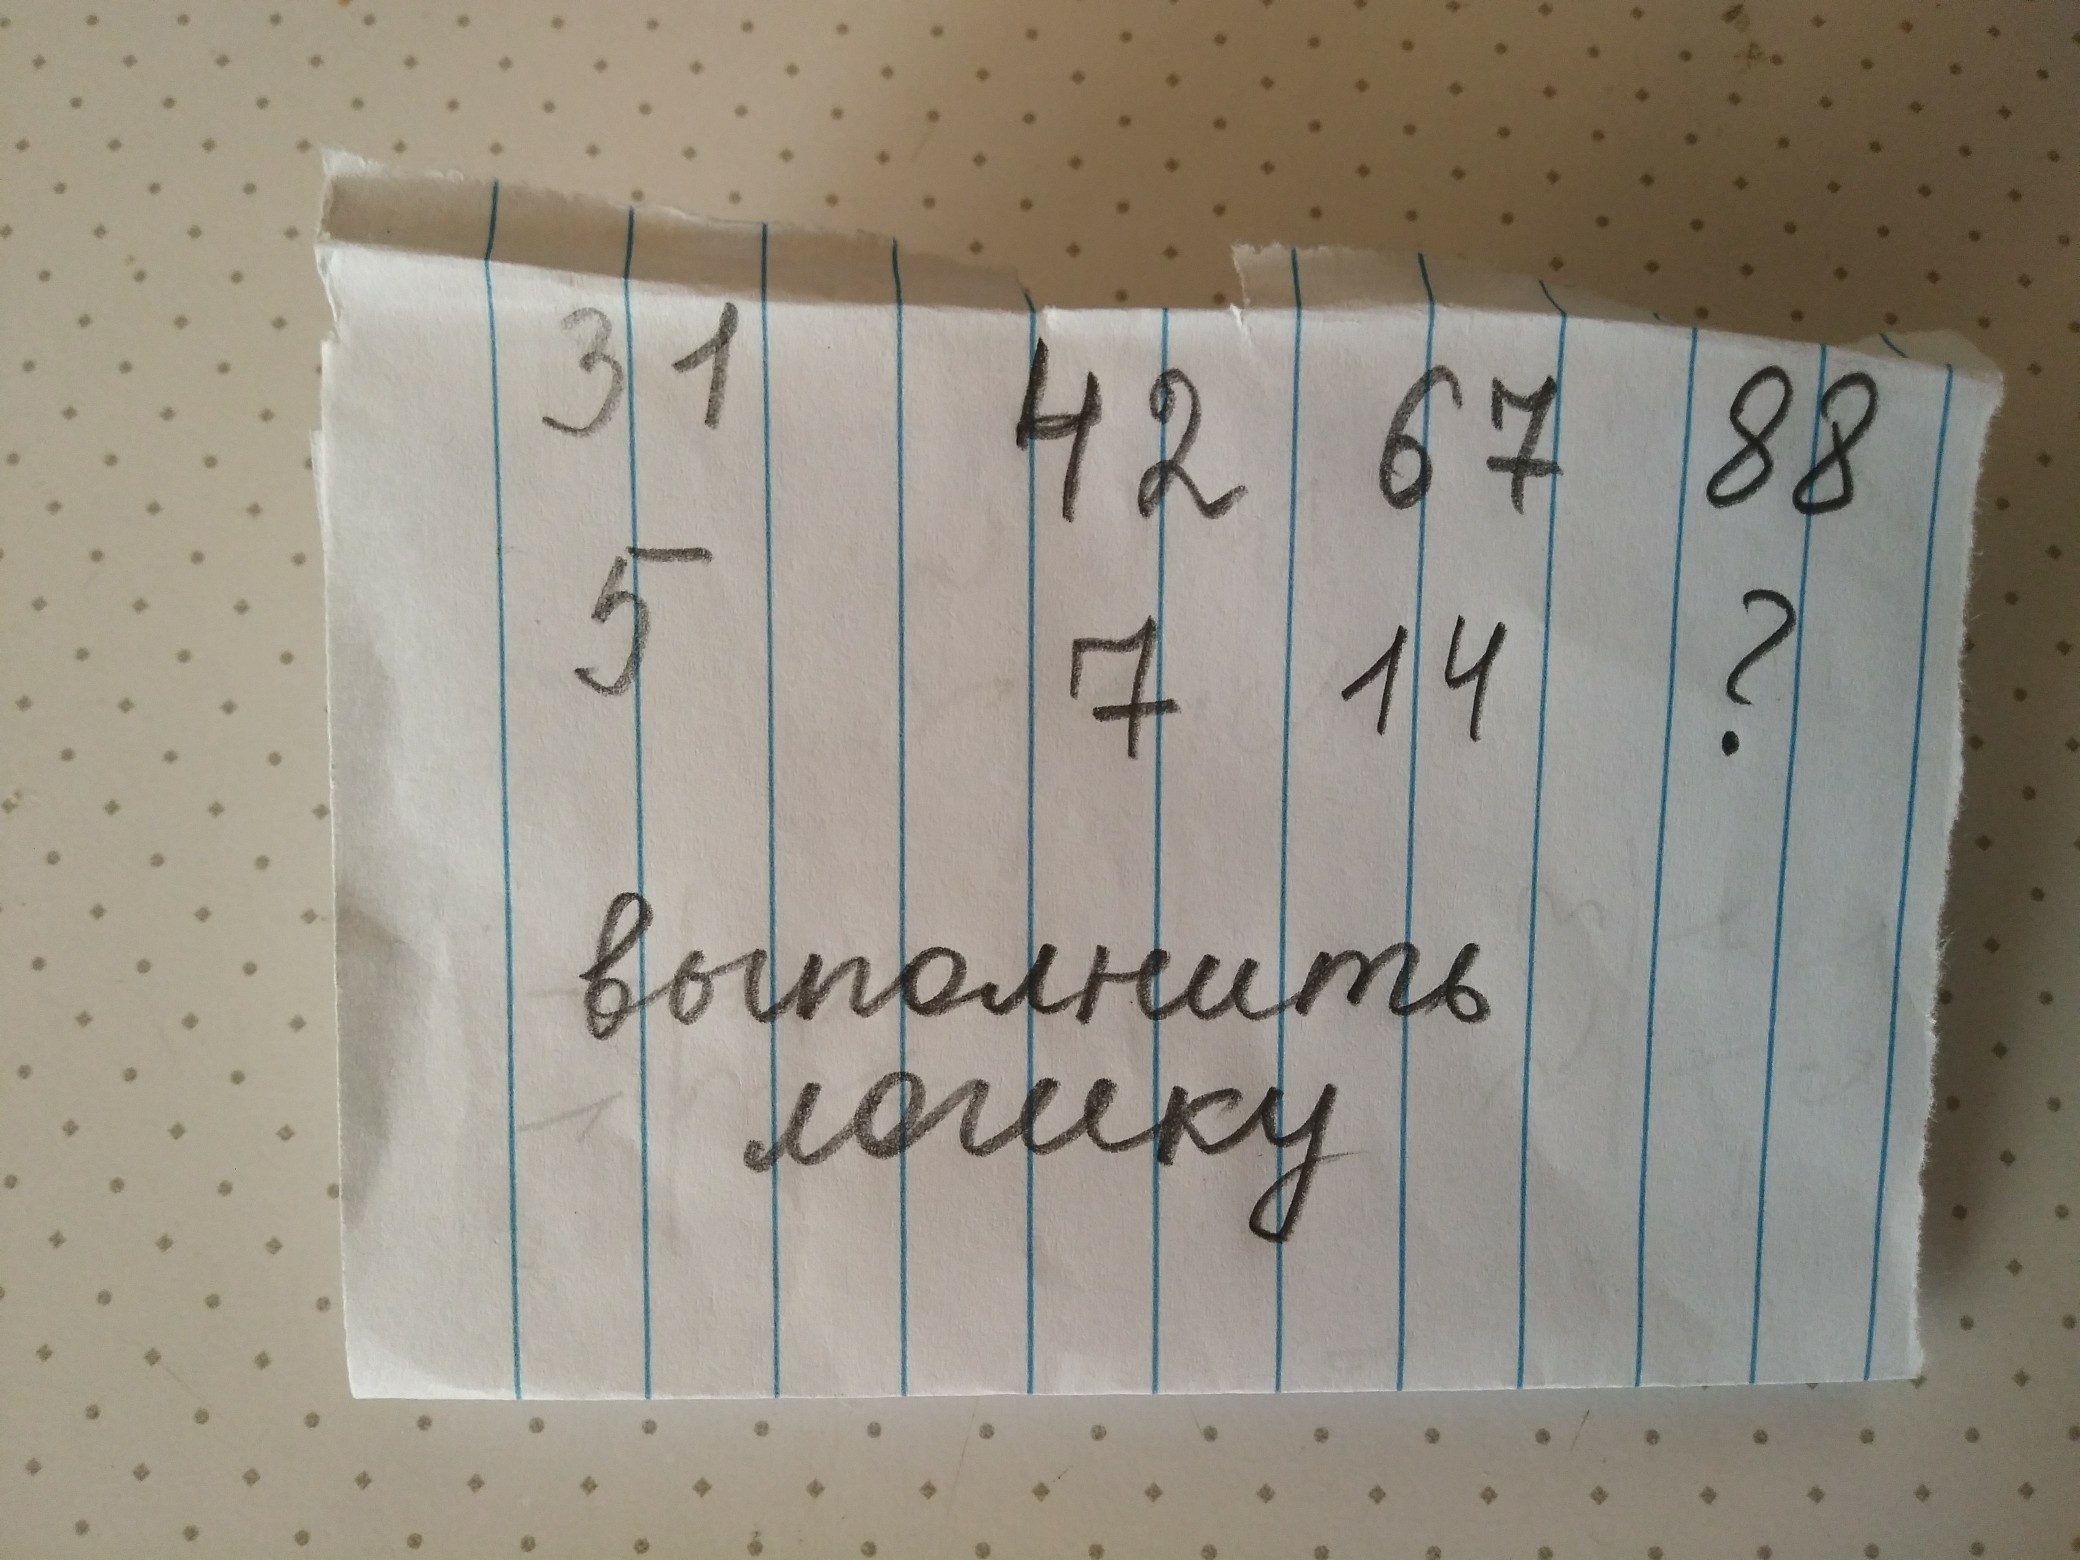 31 42 67 88
5 7 14 ?
выполнить
логику